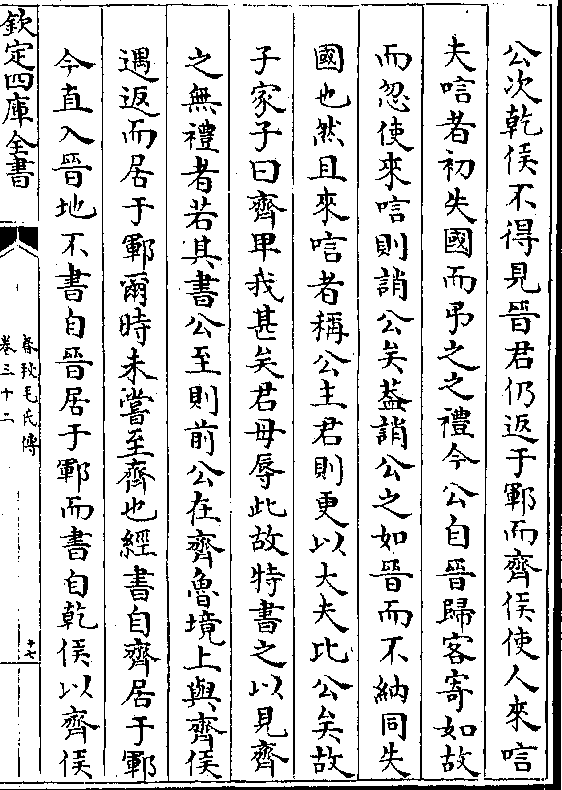 公次乾侯不得見晉君仍返于鄆而齊侯使人來唁
夫唁者初失國而弔之之禮今公自晉歸客寄如故
而忽使來唁則誚公矣葢誚公之如晉而不納同失
國也然且來唁者稱公主君則更以大夫比公矣故
子家子曰齊卑我甚矣君毋辱此故特書之以見齊
之無禮者若其書公至則前公在齊魯境上與齊侯
遇返而居于鄆爾時未嘗至齊也經書自齊居于鄆
今直入晉地不書自晉居于鄆而書自乾侯以齊侯
欽定四庫全書
春秋毛氏傳
卷三十二
十七